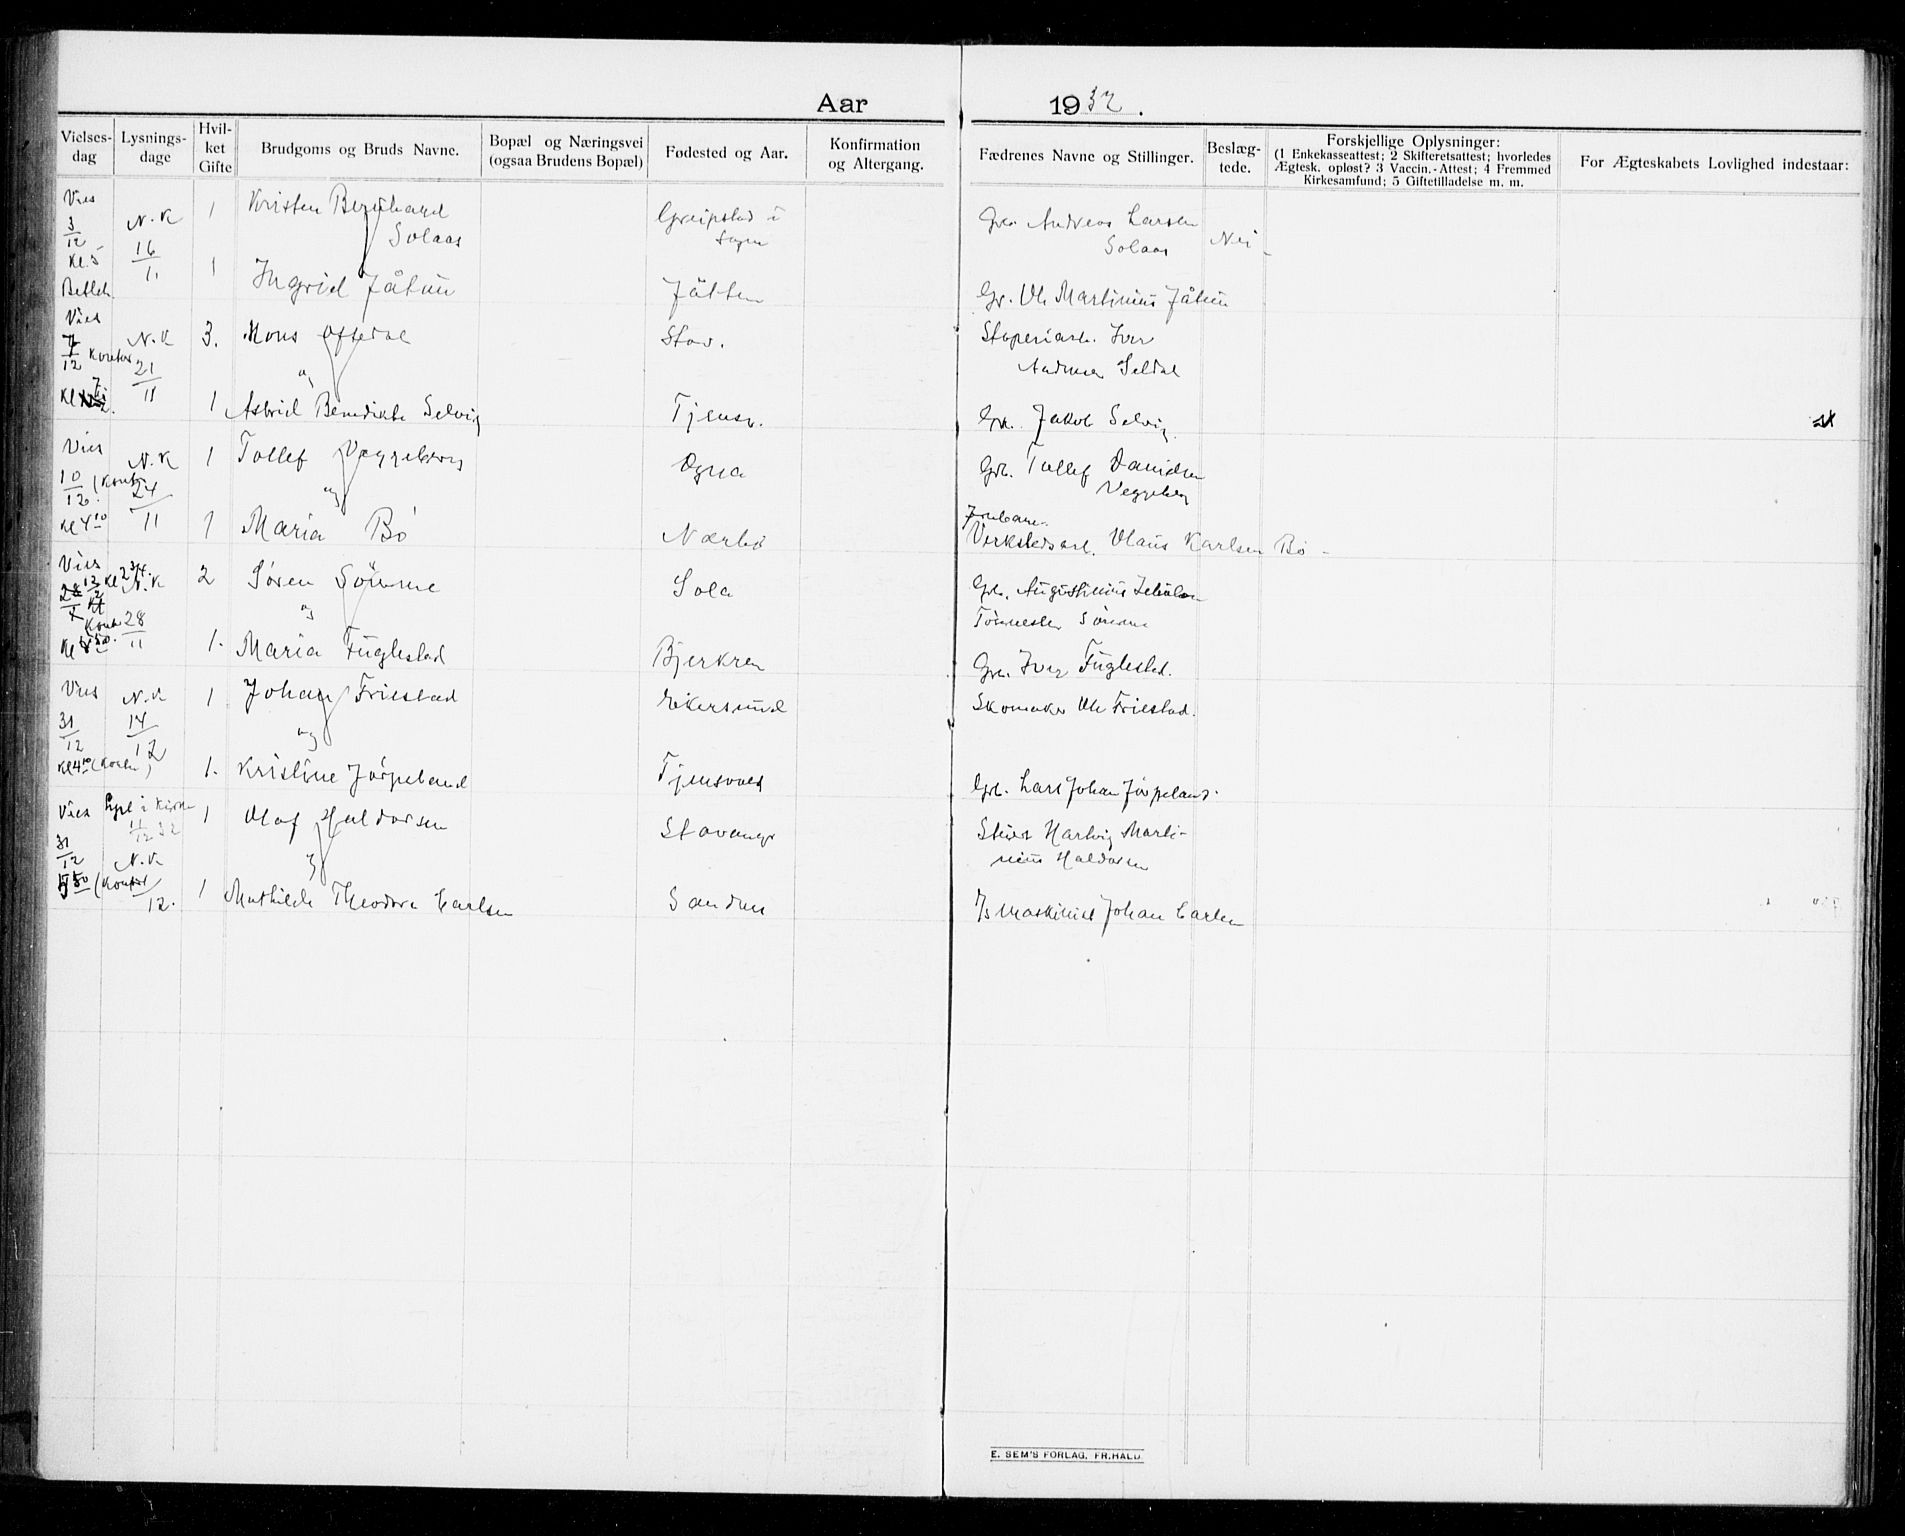 Aar 1932.
Vielses-dag
Lysnings-dage
Hvil-ket Gifte
Brudgoms og Bruds Navne.
Bopæl og Næringsvei (ogsaa Brudens Bopæl)
Fødested og Aar.
Konfirmation og Altergang.
Fædrenes Navne og Stillinger.
Beslæg-tede.
Forskjellige Oplysninger:
(1 Enkekasseattest; 2 Skifteretsattest; hvorledes
Ægtesk. opløst? 3 Vaccin.-Attest; 4 Fremmed
Kirkesamfund; 5 Giftetilladelse m. m.
For Ægteskabets Lovlighed indestaar:
Vies 3/12 Kl. 5
N.K 16/11
1 Kristen Bernhard
Solaas
Greipstad i
Andreas Larsen
Solaas
Nei
1 Ingrid Jåtun
Jåtten
Gr. Ole Martinius Jåtun
Vies 7/12 Kontor
N.K 21/11
3. Mons Oftedal
Stav.
Iver
og
1 Astrid Benedikte Selvig
Tjensv.
Gr. Jakob Selvig
Vies 10/12 (Kontor Kl 4 10
N.K 24/11
1 Tollef Veggeberg
Ogna
Grb. Tollef Danielsen
Veggeberg
og
1 Maria Bö
Nærbö
Jernbane-
Verkstedsarb. Olaus Karlsen Bö
Vies 13/12 Kl 2 3/4
N.K 28/11
2 Sören Sömme
Sola
Grb. Augustinius
Sömme
og
1. Maria Fuglestad
Bjerkrem
Grb. Iver Fuglestad.
Vies 31/12 Kl 4 10 (Kontor)
N.K 14/12
1 Johan Friestad
Ekersund
Skomaker Ole Friestad.
og
1. Kristine Jörpeland
Tjensvoll
Grb. Lars Johan Jörpeland.
Vies 31/12 5 50 (Kontor
Lyst i Kirken 11/12 32
N.K /12.
1 Olaf Haldorsen
Stavanger
Hartvig Marti-
nius Haldorsen
og
1 Mathilde Theodora Carlsen
Sandnes
Maskinist Johan Carlsen
E. SEM'S FORLAG, FR.HALD